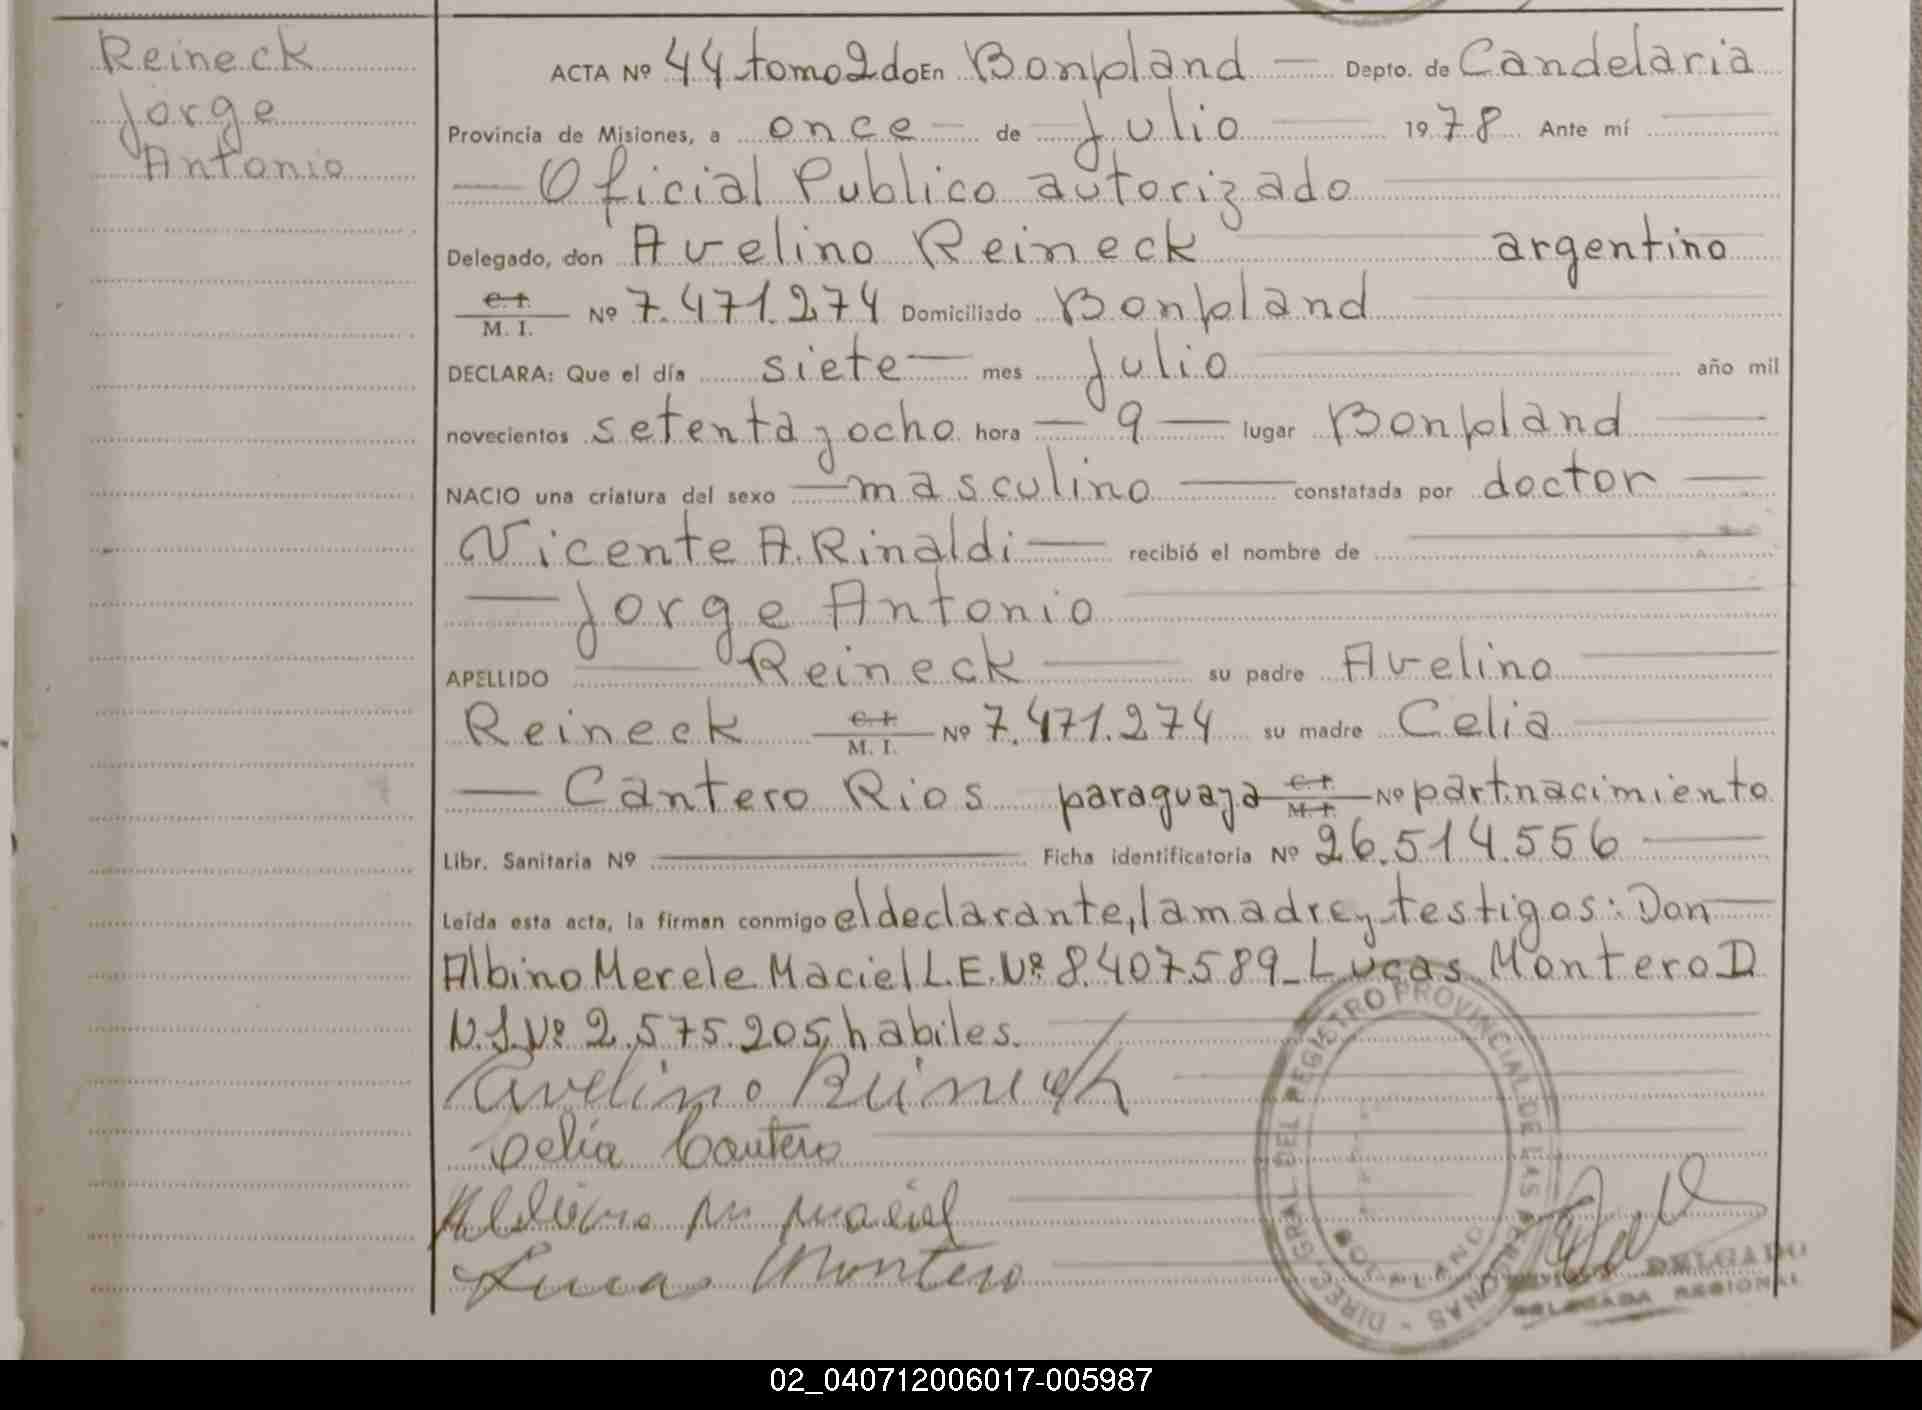 Reineck
Jorge
Antonio
ACTA Nº 44 tomo 2do En Bonpland — Depto. de Candelaria
Provincia de Misiones, a once — de Julio — 1978 Ante mí
— Oficial Publico autorizado
Delegado, don Avelino Reineck argentino
C. I.
M. I. Nº 7.471.274 Domiciliado Bonpland
DECLARA: Que el día siete — mes Julio año mil
novecientos setenta y ocho hora — 9 — lugar Bonpland
NACIO una criatura del sexo — masculino — constatada por doctor —
Vicente A. Rinaldi — recibió el nombre de
— Jorge Antonio
APELLIDO — Reineck — su padre Avelino
Reineck C. I. M. I. Nº 7.471.274 su madre Celia
— Cantero Rios paraguaya C. I. M. I. Nº part.nacimiento
Libr. Sanitaria Nº — Ficha identificatoria Nº 26.514.556
Leída esta acta, la firman conmigo el declarante, la madre y testigos: Don
Albino Merele Maciel L.E.Nº 8.407.589_ Lucas Montero D
N.I.Nº 2.575.205, habiles.
Avelino Reineck
Celia Cantero
Maciel
Lucas Montero
DIREC. GRAL. DEL REGISTRO PROVINCIAL DE LAS PERSONAS
BONPLAND
DELGADO
DELEGADA REGIONAL
02_040712006017-005987